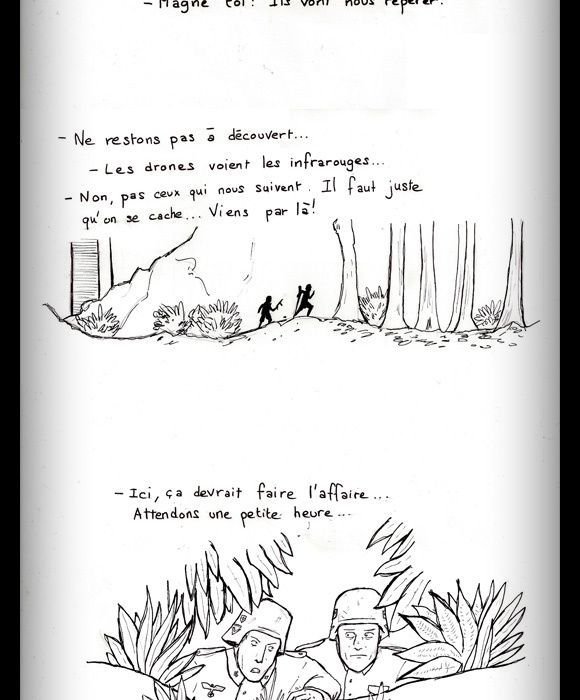 - Magne toi! Ils vont nous repérer!
- Ne restons pas à découvert...
- Les drones voient les infrarouges...
- Non, pas ceux qui nous suivent. Il faut juste
qu'on se cache... Viens par là!
- Ici, ça devrait faire l'affaire...
Attendons une petite heure...